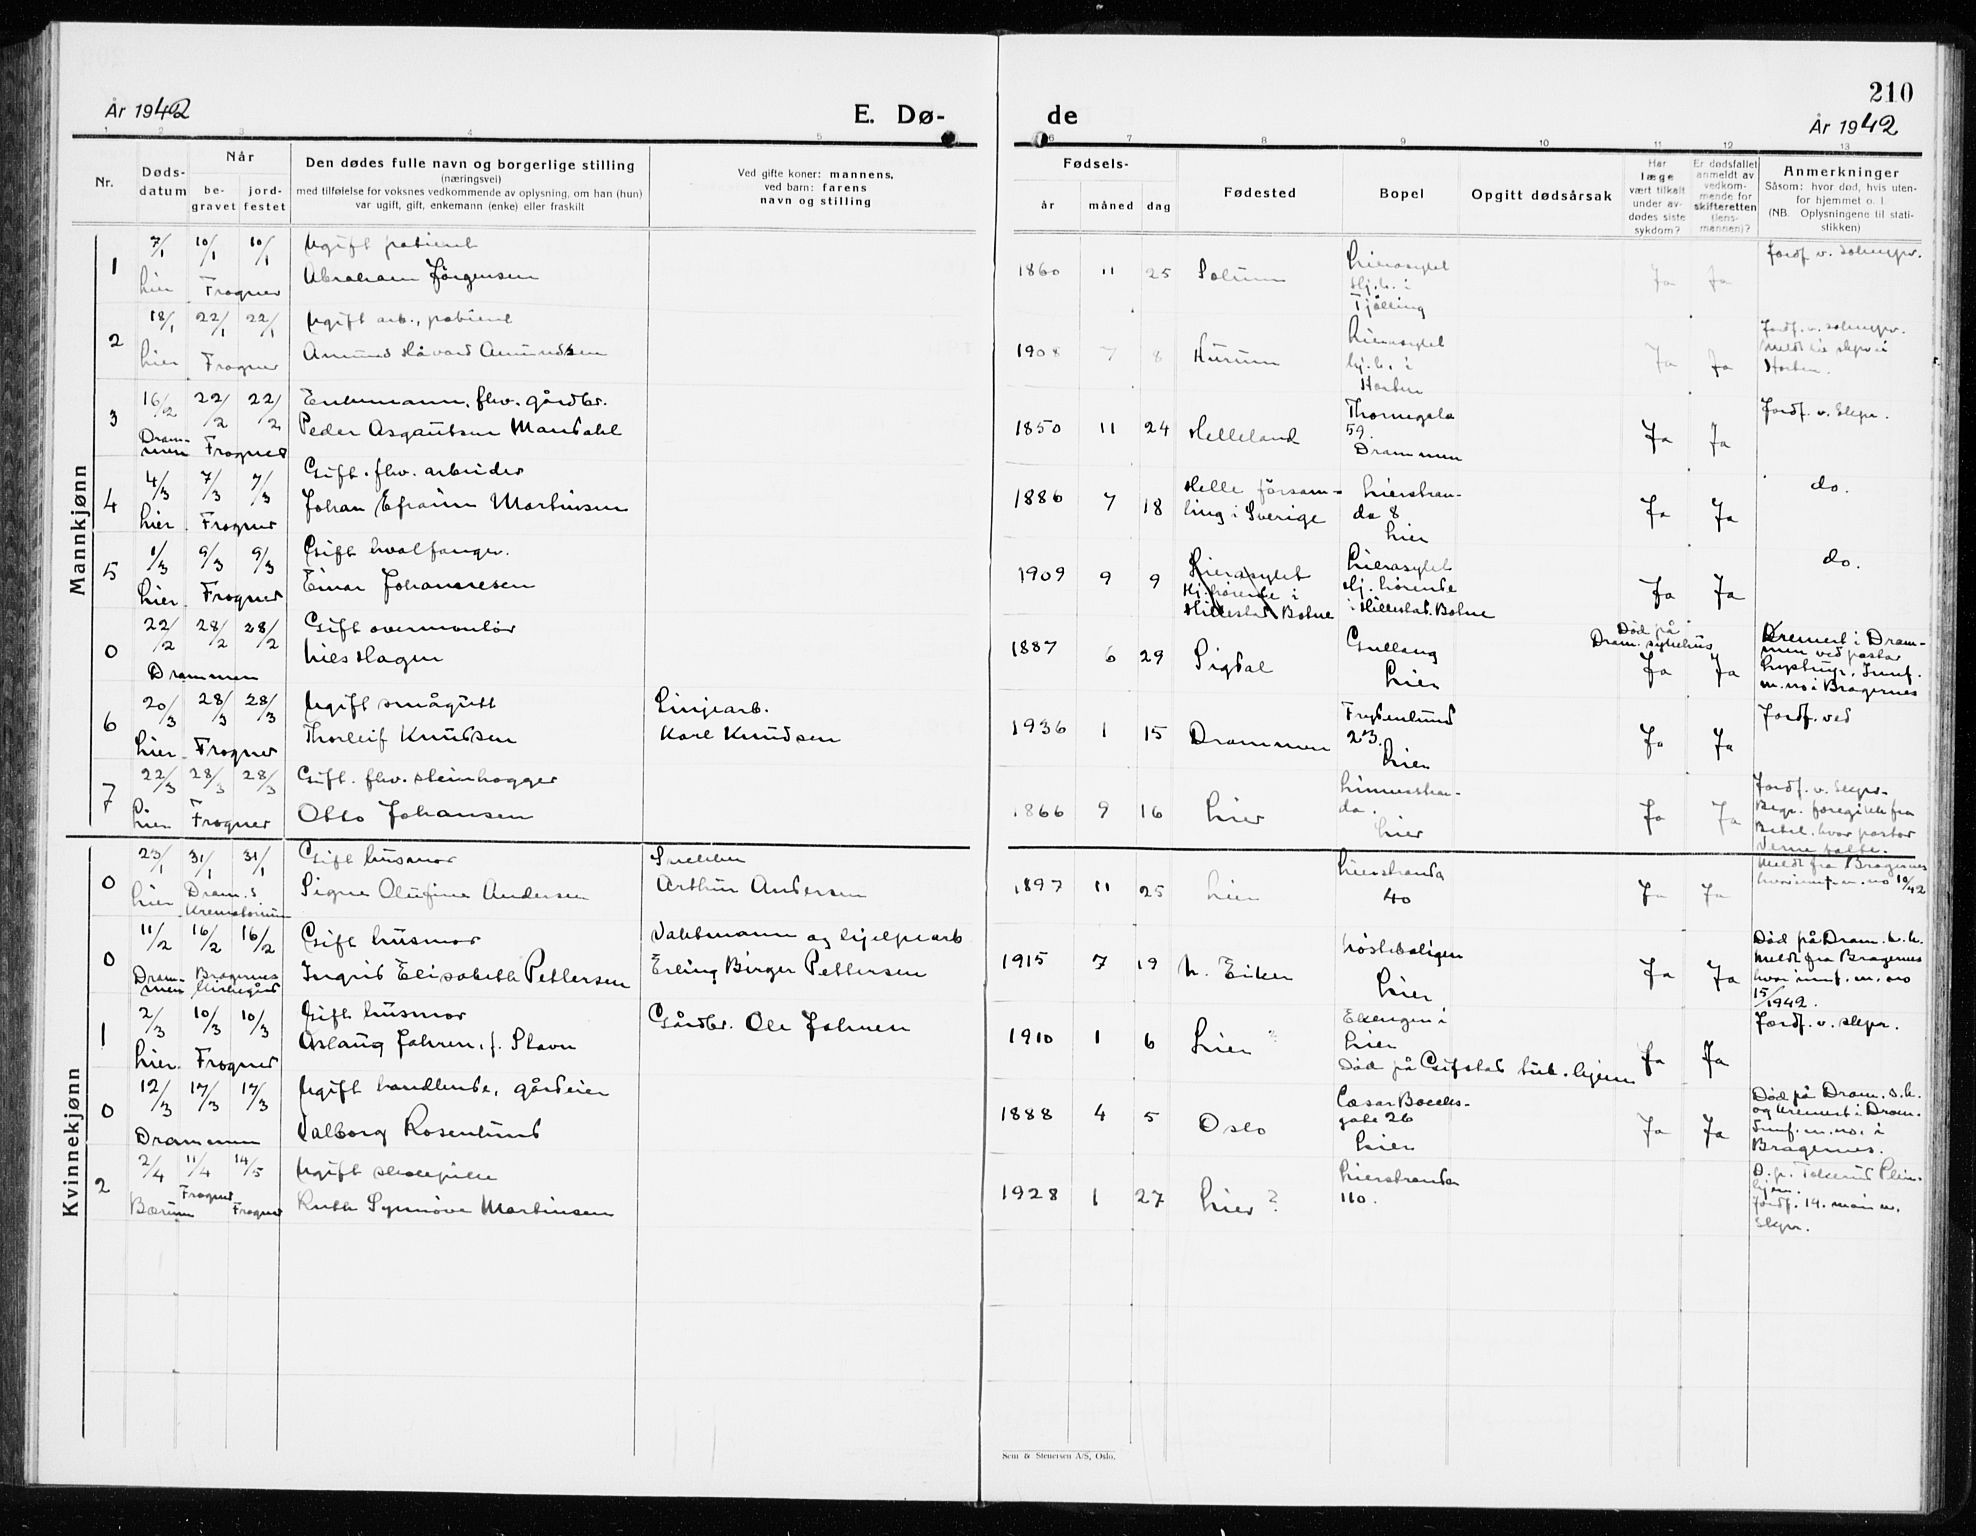 210
År 1942
E. Dø-
de
År 1942
1 2 3 4 5 6 7 8 9 10 11 12 13
Nr.
Døds-
datum
Når
be-
gravet
jord-
festet
Den dødes fulle navn og borgerlige stilling
(næringsvei)
med tilføielse for voksnes vedkommende av oplysning, om han (hun)
var ugift, gift, enkemann (enke) eller fraskilt
Ved gifte koner: mannens,
ved barn: farens
navn og stilling
Fødsels-
år måned dag
Fødested
Bopel
Opgitt dødsårsak
Har
læge
vært tilkalt
under av-
dødes siste
sykdom?
Er dødsfallet
anmeldt av
vedkom-
mende for
skifteretten
(lens-
mannen)?
Anmerkninger
Såsom: hvor død, hvis uten-
for hjemmet o. l.
(NB. Oplysningene til stati-
stikken)
Mannkjønn
1 7/1 10/1 10/1 Ugift patient
Lier Frogner Abraham Jörgensen
1860 11 25 Solum
Lierasylet
Hj.h. i
Tjölling
Ja Ja
Jordf. v. soknepr.
2 18/1 22/1 22/1 Ugift arb., patient
Lier Frogner Amund Håvard Amundsen
1908 7 8 Hurum
Lierasylet
hj.h. i
Horten
Ja Ja
Jordf. v. soknepr.
Meldt til skpr i
Horten.
3 16/2 22/2 22/2 Enkemann, fhv. gårdbr.
Dram-
men Frogner Peder Asgautsen Mandahl
1850 11 24 Helleland
Thornegata
59.
Drammen
Ja Ja
Jordf. v. Skpr.
4 4/3 7/3 7/3 Gift. fhv. arbeider
Lier. Frogner Johan Efraim Martinsen
1886 7 18
Helle försam-
ling i Sverige
Lierstran-
da 8
Lier
Ja Ja
do.
5 1/3 9/3 9/3 Gift hvalfanger.
Lier. Frogner Einar Johannesen
1909 9 9
Lierasylet
Hj.hörende i
Hillestad Botne
Lierasylet
Hj. hörende
i Hillestad. Botne
Ja Ja
do.
0 22/2 28/2 28/2 Gift overmontör
Drammen Nils Hagen
1887 6 29 Sigdal
Gullaug
Lier
Död på
Dram. sykehus
Ja Ja
Kremert i Dram-
men ved pastor
Lystrup. Innf.
m. no i Bragernes
6 20/3 28/3 28/3 Ugift smågutt
Lier Frogner Thorleif Knudsen
Linjearb.
Karl Knudsen
1936 1 15 Drammen
Frydenlund
23.
Lier
Ja Ja
Jordf. ved
7 22/3 28/3 28/3 Gift. fhv. steinhogger
Lier Frogner Otto Johansen
1866 9 16 Lier
Linnesstran-
da.
Lier
Ja Ja
Jordf. v. Skpr.
Begr. foregikk fra
Betel. hvor pastor
talte.
Kvinnekjønn
0 23/1 31/1 31/1 Gift husmor
Lier Dram.s
Krematorium Signe Olufine Andersen
Snekker
Arthur Andersen
1897 11 25 Lier
Lierstranda
40
Ja Ja
Meldt fra Bragernes
hvor innf. m. no 10/42
0 11/2 16/2 16/2 Gift husmor
Dram-
men Bragernes
Kirkegård Ingrid Elisabeth Pettersen
Vaktmann og hjelpearb
Erling Birger Pettersen
1915 7 19 N. Eiker
Lier
Ja Ja
Död på Dram. k.h.
Meldt fra Bragernes
hvor innf. m. no
15/1942.
1 2/3 10/3 10/3 Gift husmor
Lier. Frogner Aslaug Johren, f. Stavn
Gårdbr. Ole Johren
1910 1 6 Lier ?
Ekengen i
Lier
Död på Gifstad tub. hjem
Ja Ja
Jordf. v. skpr.
0 12/3 17/3 17/3 Ugift handlende, gårdeier
Drammen Valborg Rosenlund
1888 4 5 Oslo
Cæsar Boecks-
gate 26
Lier
Ja Ja
Död på Dram. s.h.
og kremert i Dram.
Innf. m. no. i
Bragernes.
2 2/4 11/4 14/5 Ugift skolepike
Bærum Frogner Frogner Ruth Synnöve Martinsen
1928 1 27 Lier ?
Lierstranda
110.
D. p. Tokerud Plei-
hjem.
Jordf. 14. mai v.
Skpr.
Sem & Stenersen A/S, Oslo.